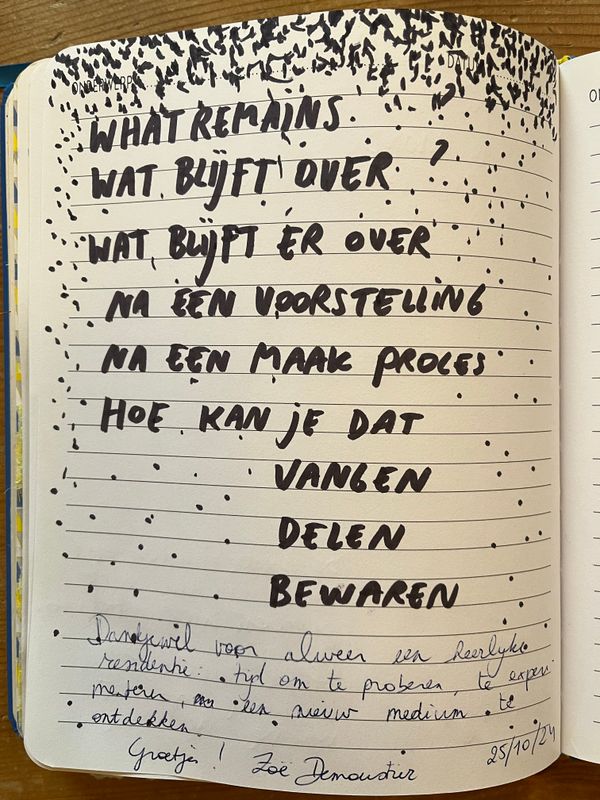 ONDERWERP DATUM
WHAT REMAINS
WAT BLIJFT OVER ?
WAT BLIJFT ER OVER
NA EEN VOORSTELLING
NA EEN MAAK PROCES
HOE KAN JE DAT
VANGEN
DELEN
BEWAREN
Dankjewel voor alweer een heerlijke
residentie: tijd om te proberen, te experi-
menteren, om een nieuw medium te
ontdekken.
Groetjes! Zoë Demoustier
25/10/24